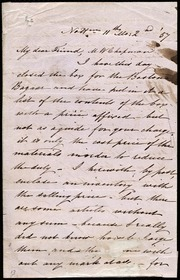 11th Mo 2nd '57
My dear friend, M W Chapman
I have this day
closed the box for the Boston
Bazaar and have put in it a
list of the contents of the box
with a price affixed - but
not as a guide for your charge,
it is only the cost price of the
materials in order to reduce
the duty - I herewith, by post
enclose an inventory with
the selling price - but there
are some articles without
any sum - because I really
did not know how to charge
them and the you wish
out any mark at all - for